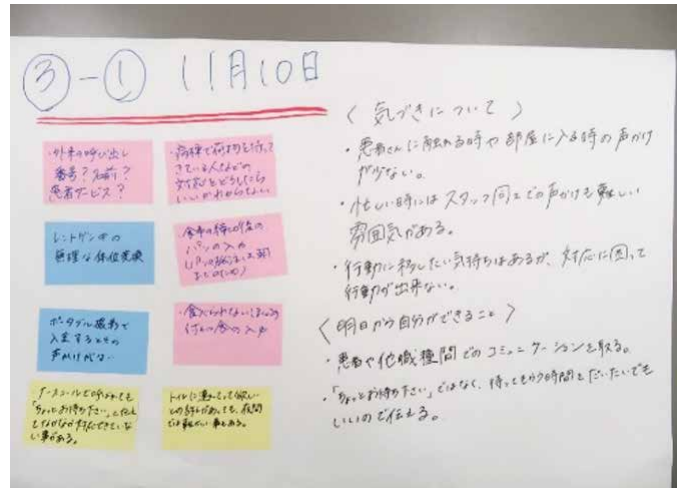 ③-① 11月10日
・外来の呼び出し
番号?名前?
患者サービス?
・病棟で荷物を持って
きている人などの
対応をどうしたら
いいかわからない
レントゲン中の
無理な体位変換
・食事の
パンの入や
ポータブル撮影で
入室するときの
声かけがない
・食べられない
ナースコールで呼ばれても
「ちょっとお待ち下さい」と伝え
てなかなか対応できていな
い事がある。
トイレに連れてって欲しい
との訴えがあっても、夜間
では難しい事もある。
〈気づきについて〉
・患者さんに触れる時や部屋に入る時の声かけ
が少ない。
・忙しい時にはスタッフ同士での声かけも難しい
雰囲気がある。
・行動に移したい気持ちはあるが、対応に困って
行動が出来ない。
〈明日から自分ができること〉
・患者や他職種間でのコミュニケーションを取る。
・「ちょっとお待ち下さい」ではなく、待ってもらう時間をだいたいでも
いいので伝える。